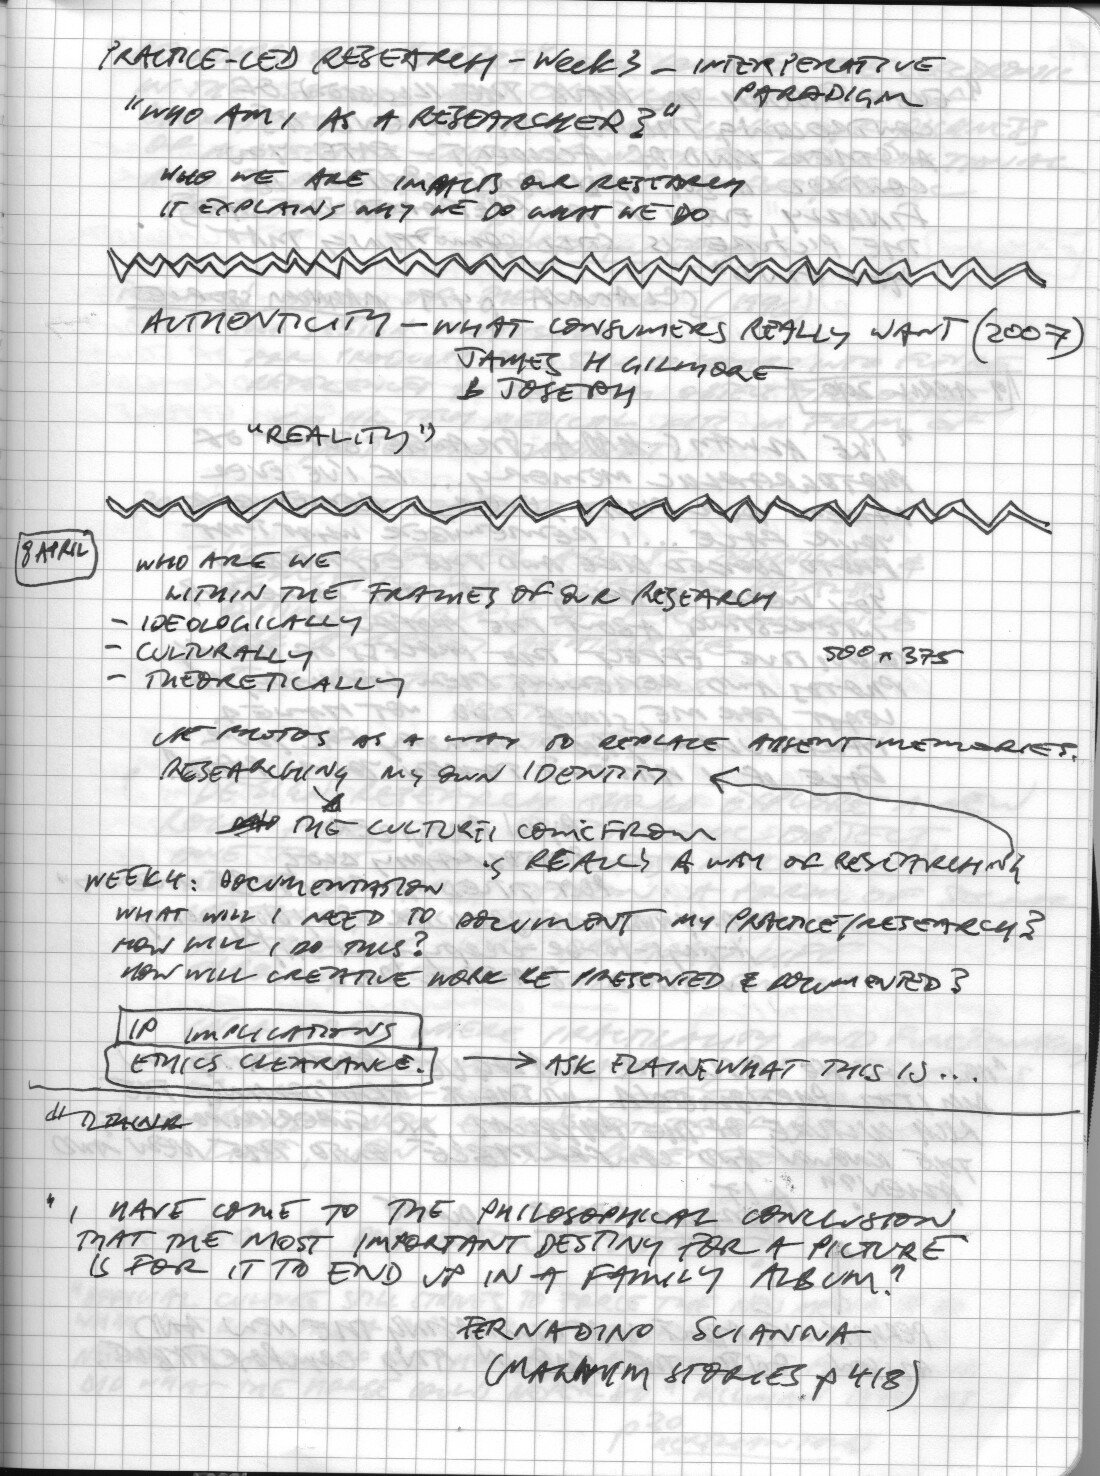 PRACTICE-LED RESEARCH - WEEK 3 - INTERPERATIVE
PARADIGM
"WHO AM I AS A RESEARCHER?"
WHO WE ARE IMPACTS OUR RESEARCH
IT EXPLAINS WHY WE DO WHAT WE DO
AUTHENTICITY - WHAT CONSUMERS REALLY WANT (2007)
JAMES H GILMORE
B JOSEPH
"REALITY"
8 APRIL
WHO ARE WE
WITHIN THE FRAMES OF OUR RESEARCH
- IDEOLOGICALLY
- CULTURALLY
- THEORETICALLY
500 x 375
PHOTOS AS A WAY TO REPLACE ABSENT MEMORIES.
RESEARCHING MY OWN IDENTITY
THE CULTURE I COME FROM
IS REALLY A WAY OF RESEARCHING
WEEK 4: DOCUMENTATION
WHAT WILL I NEED TO DOCUMENT MY PRACTICE/RESEARCH?
HOW WILL I DO THIS?
HOW WILL CREATIVE WORK BE PRESENTED & DOCUMENTED?
IP IMPLICATIONS
ETHICS CLEARANCE. → ASK ELAINE WHAT THIS IS...
"I HAVE COME TO THE PHILOSOPHICAL CONCLUSION
THAT THE MOST IMPORTANT DESTINY FOR A PICTURE
IS FOR IT TO END UP IN A FAMILY ALBUM."
FERNADINO SCIANNA
(MAGNUM STORIES p 418)